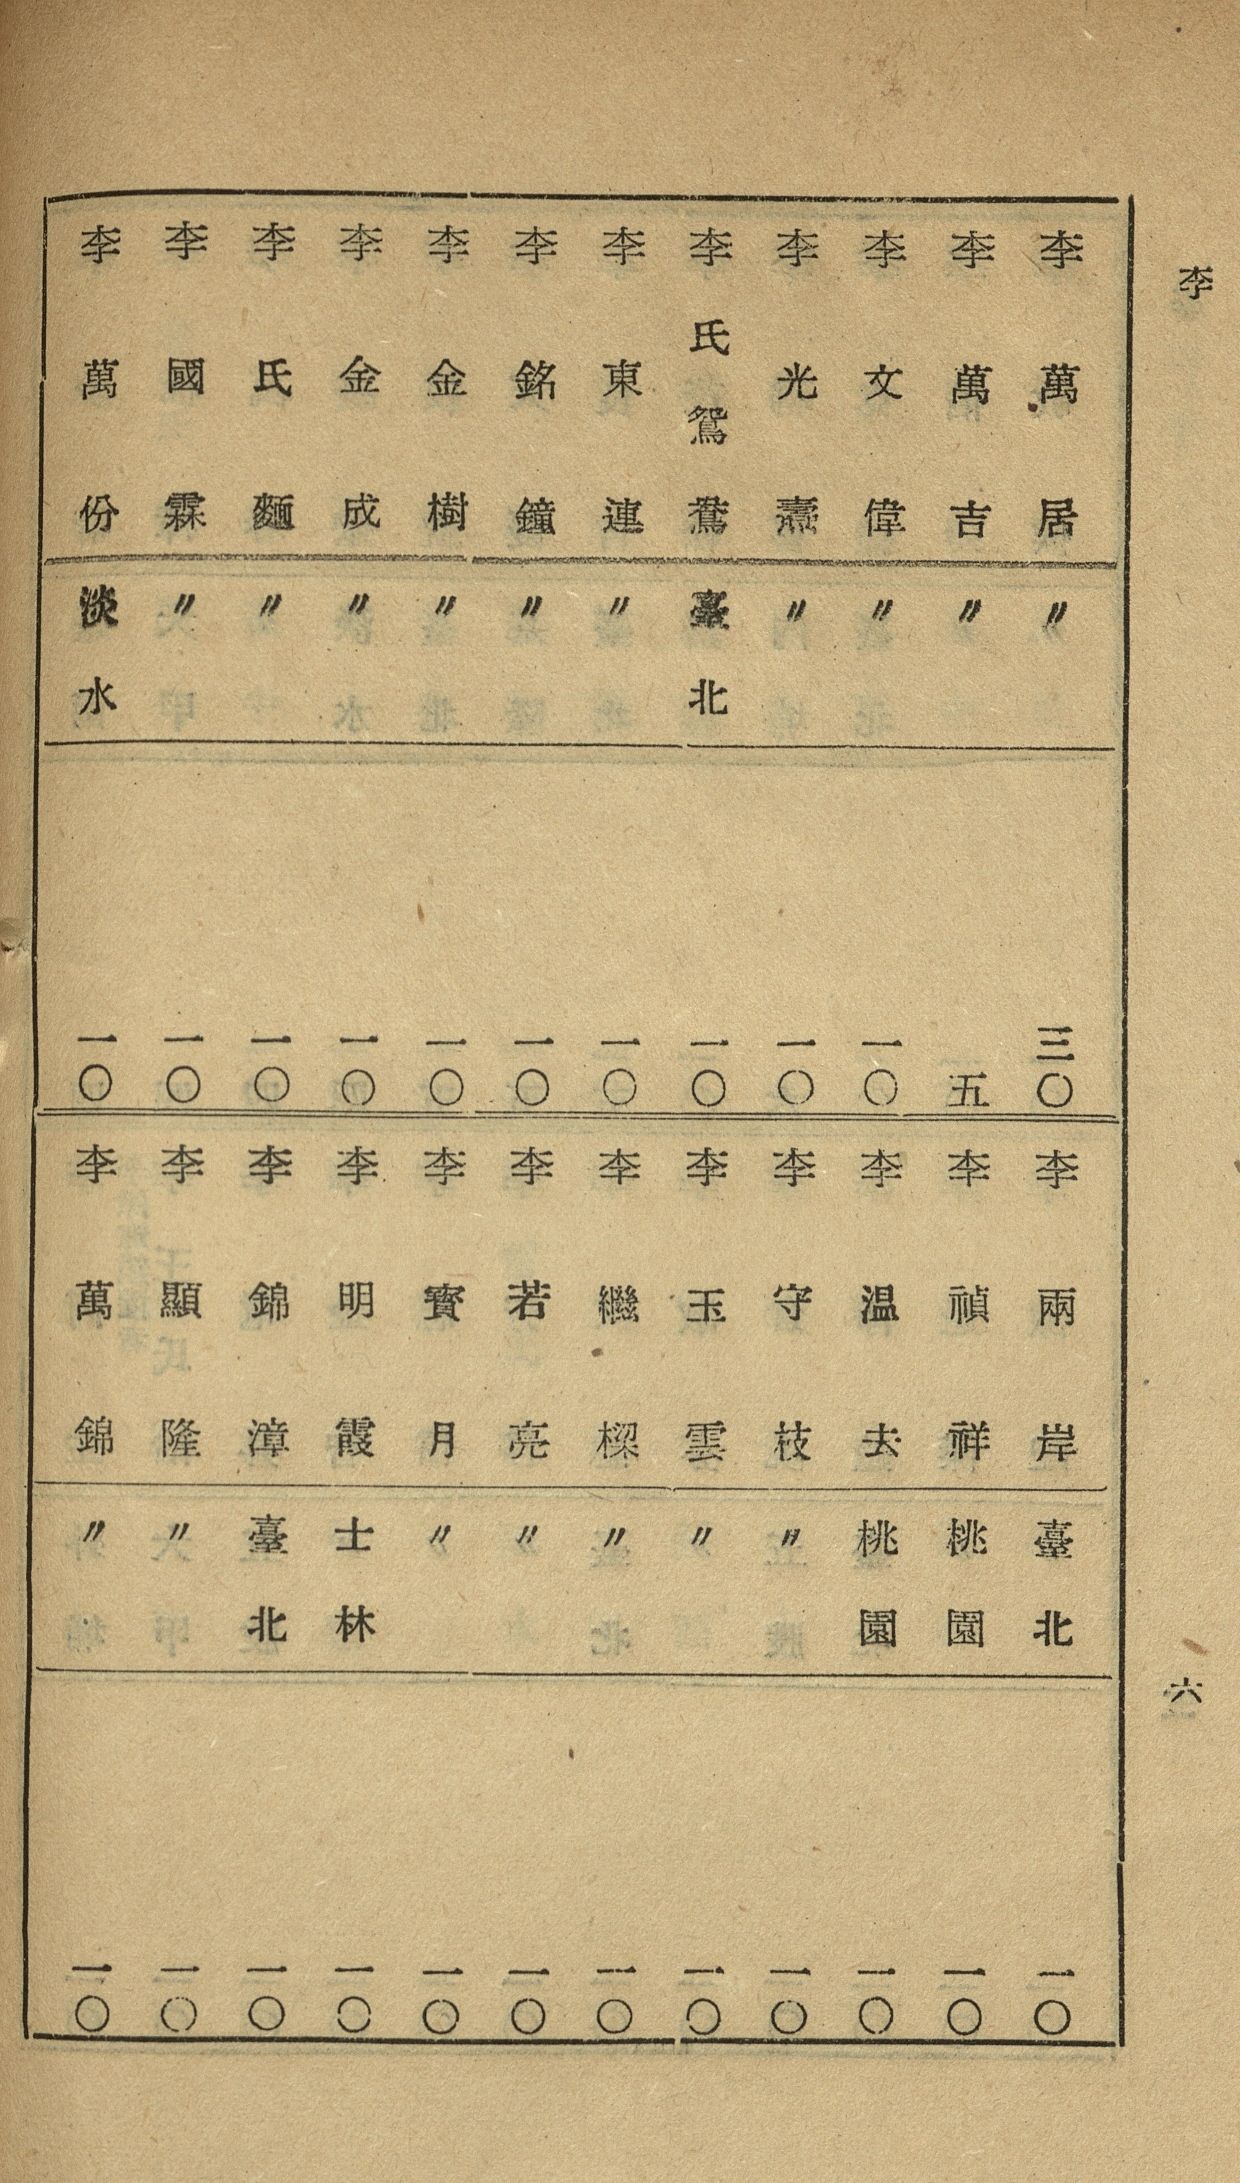 李
李萬居 〃 三〇
李萬吉 〃 五
李文偉 〃 一〇
李光燾 〃 一〇
李氏鴛鴦 臺北 一〇
李東連 〃 一〇
李銘鐘 〃 一〇
李金樹 〃 一〇
李金成 〃 一〇
李氏麵 〃 一〇
李國霖 〃 一〇
李萬份 淡水 一〇
李兩岸 臺北 一〇
李禎祥 桃園 一〇
李温去 桃園 一〇
李守枝 〃 一〇
李玉雲 〃 一〇
李繼樑 〃 一〇
李若亮 〃 一〇
李寶月 〃 一〇
李明霞 士林 一〇
李錦漳 臺北 一〇
李顯隆 〃 一〇
李萬錦 〃 一〇
六